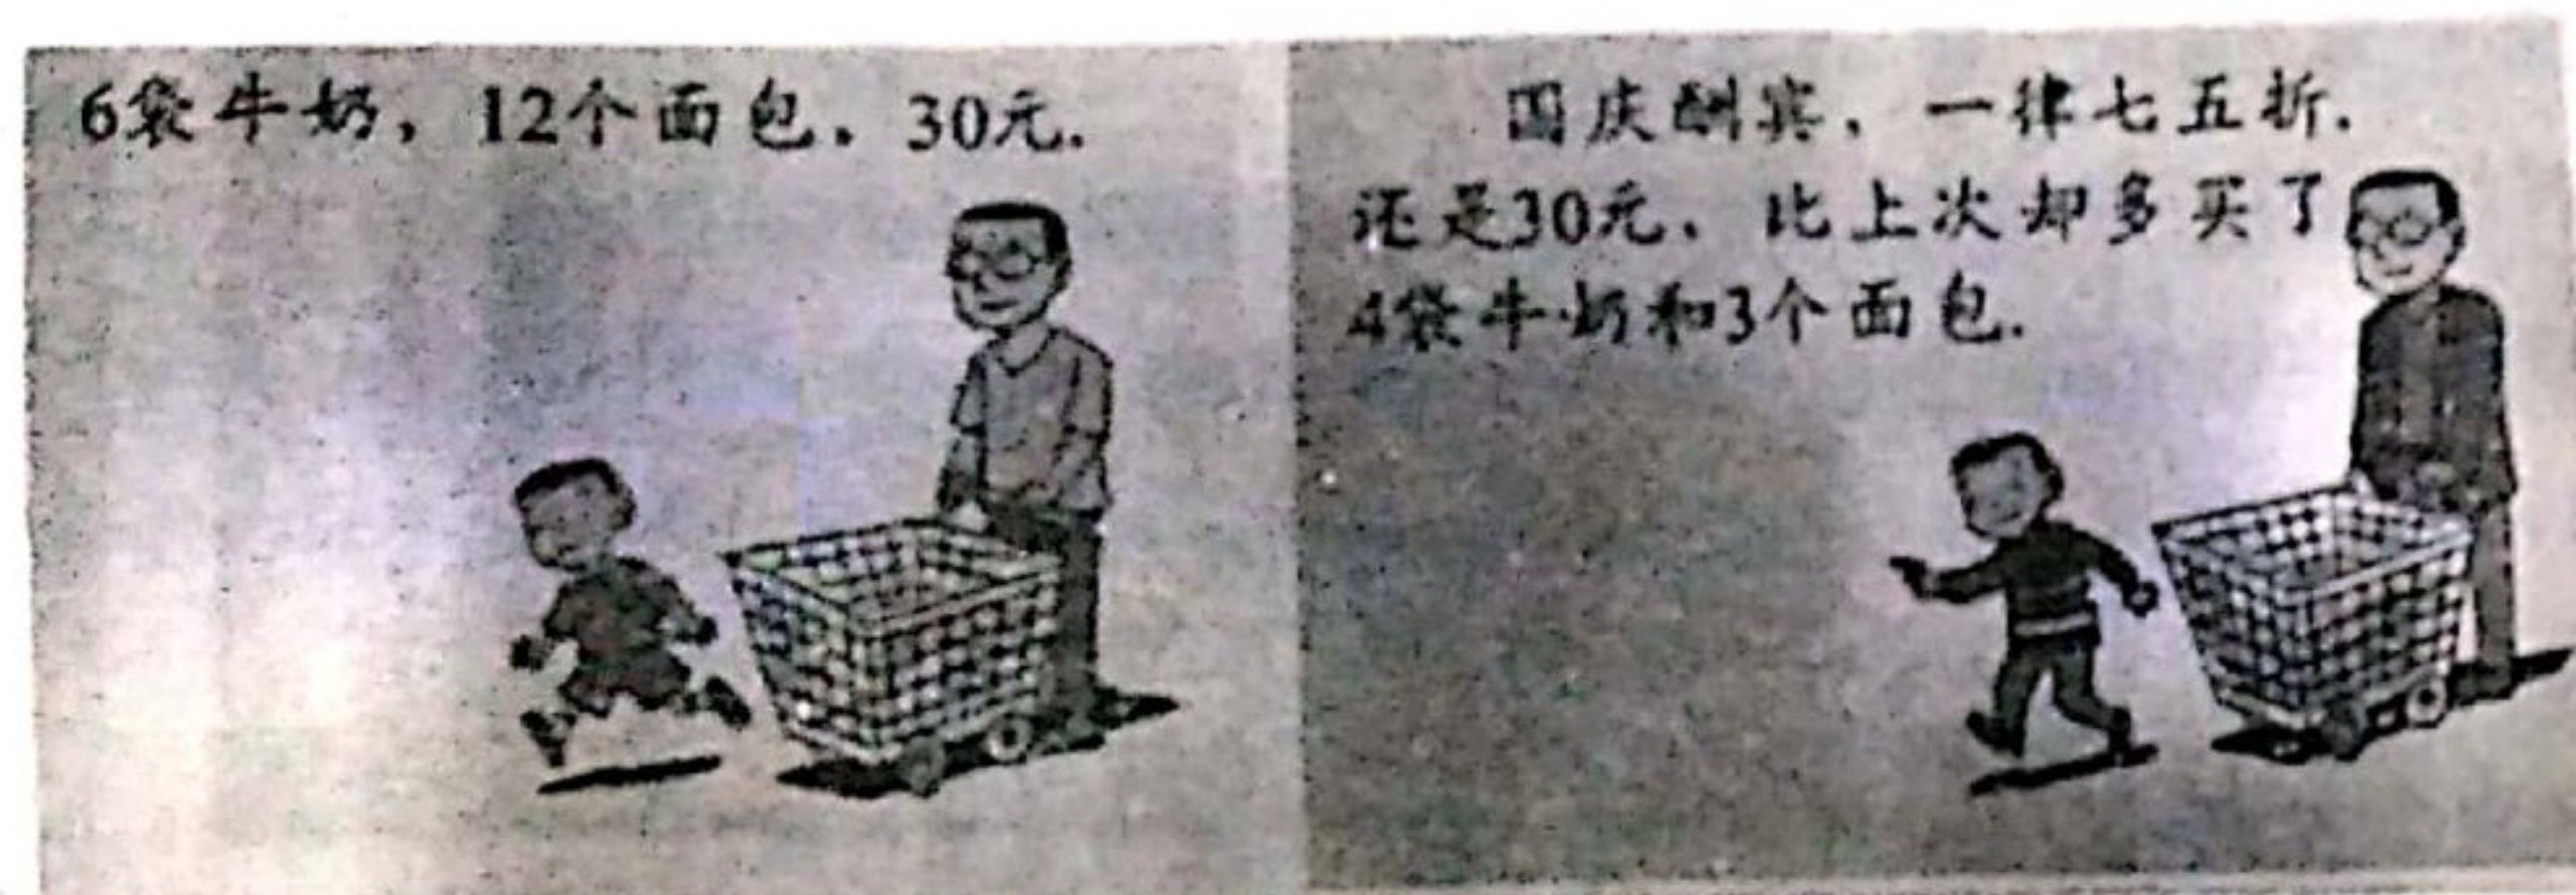 6袋牛奶，12个面包．30元．
国庆酬宾，一律七五折．
还是30元，比上次却多买了
4袋牛奶和3个面包．